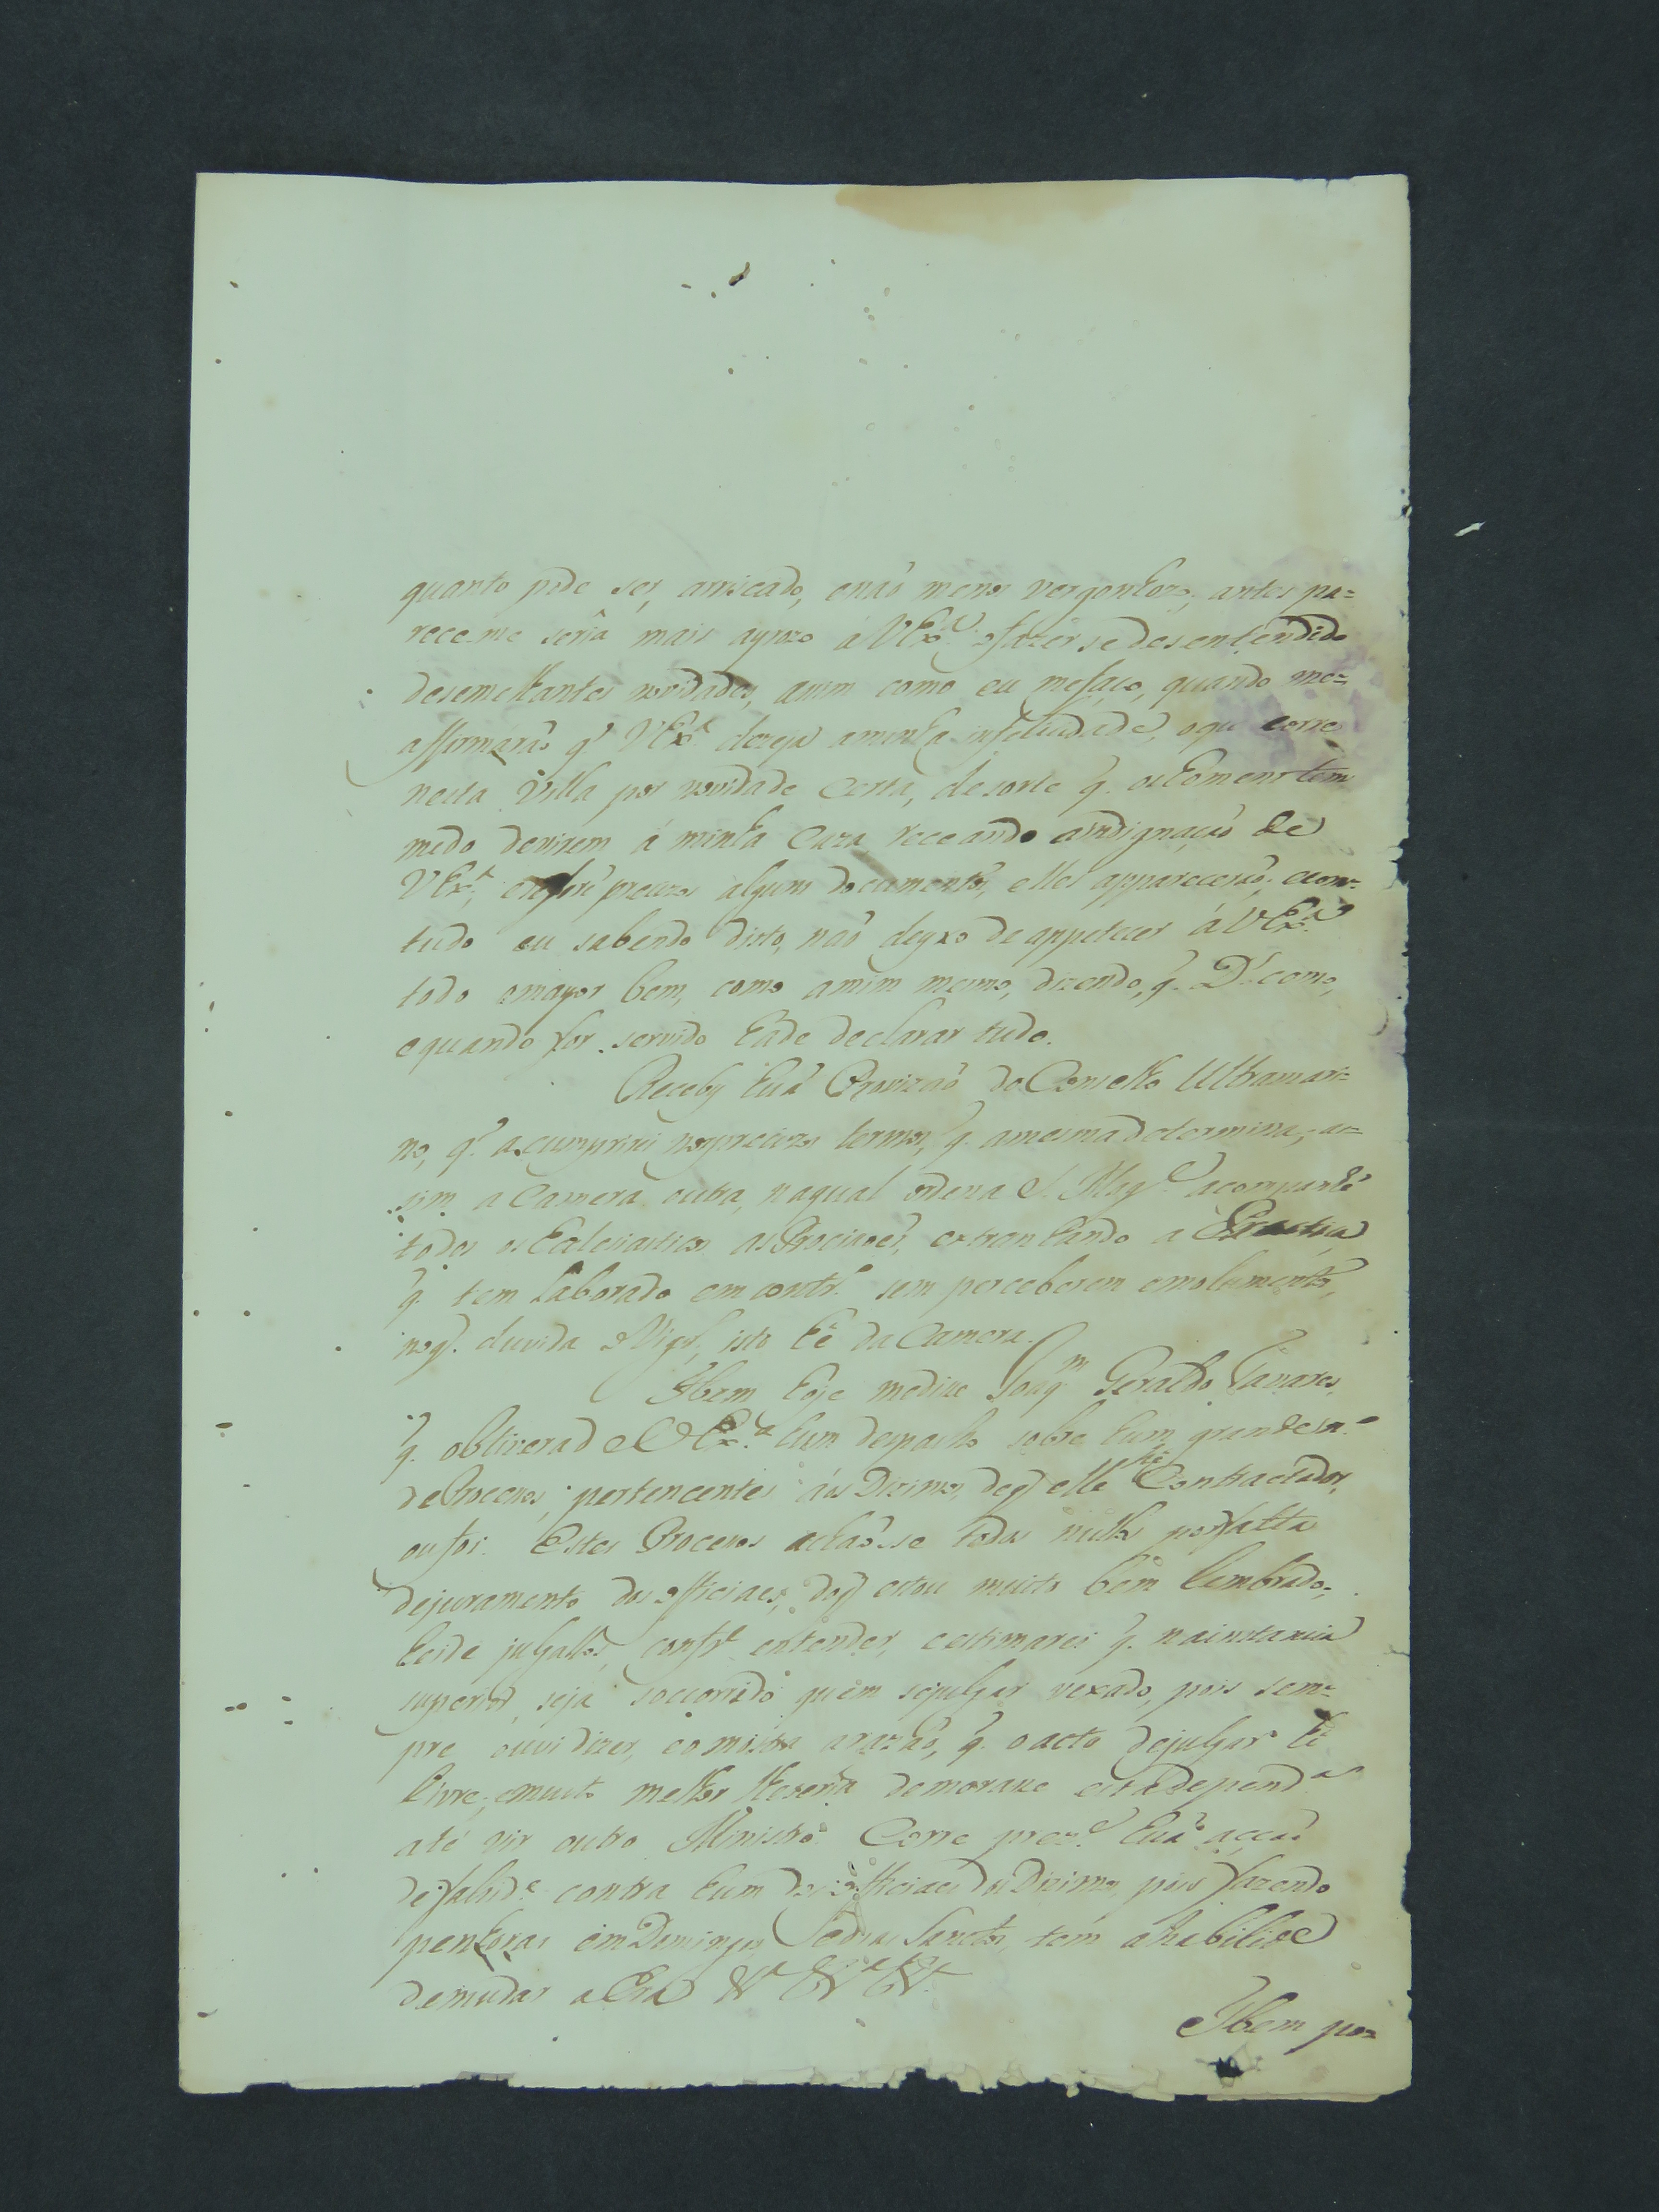 quanto pode ser, arriscado, enaõ menos vergonhozo, antes pa=
receme seria mais ayrozo á VExª. ofazer se desentendido
desemelhantes novidades, asim como eu mefaço, quando me=
affirmaraõ q̃ VExª. dezeja aminha infelicidade, oque corre
nesta Villa por novidade certa, desorte q̃. oshomens tem
medo devirem á minha Caza, receando aindignaçaõ de
VExª., precizos alguns documentos, elles appareceraõ; econ=
tudo eu sabendo disto, naõ deyxo de appetecer á VExª.
todo omayor bem, como amim mesmo, dizendo, q̃. D.s como,
equando for servido hade declarar tudo.
Receby huã Provizaõ do Conselho Ultramari=
no, q̃. a cumprirei nospreciozos termos, q̃. amesma determina, as=
sim a Camera outra, naqual ordena S. Magᵉ. acompanhẽ
todos os Eclesiasticos as Prociçoẽs, extranhando a Practica
q̃. tem laborado em contrº. sem perceberem emolumentos,
noq̃. duvida o Vigrº., isto hé da Camera.
Ibem hoje medice Joaqᵐ Geraldo Tavares,
q̃. obtivera de VExª. hum despacho sobre hum grande nº.
de Processos, pertencentes áos Dizimos, deq̃ elle hé Contractador,
oufoi. Estes Processos achaõsse todos nullos porfalta
dejuramento dos officiaes, doq̃ estou muito bem lembrado,
heide julgallos, confᵉ. entender, eestimarei q̃. nainstancia
superior, seja soccorrido quem sejulgar vexado, pois sem=
pre ouvi dizer, eomostra arazaõ, q̃. oacto dejulgar hé
livre, emuito melhor lheseria demorasse esta dependª.
até vir outro Ministro. Corre prezᵉ. huã acçaõ
defalsidᵉ. contra hum dos officiaes dos Dizimos, pois fazendo
penhoras em Domingos, edias Sanctos, tem ahabilidᵉ
demudar a Era &ª &ª &ª.
Ibem po=